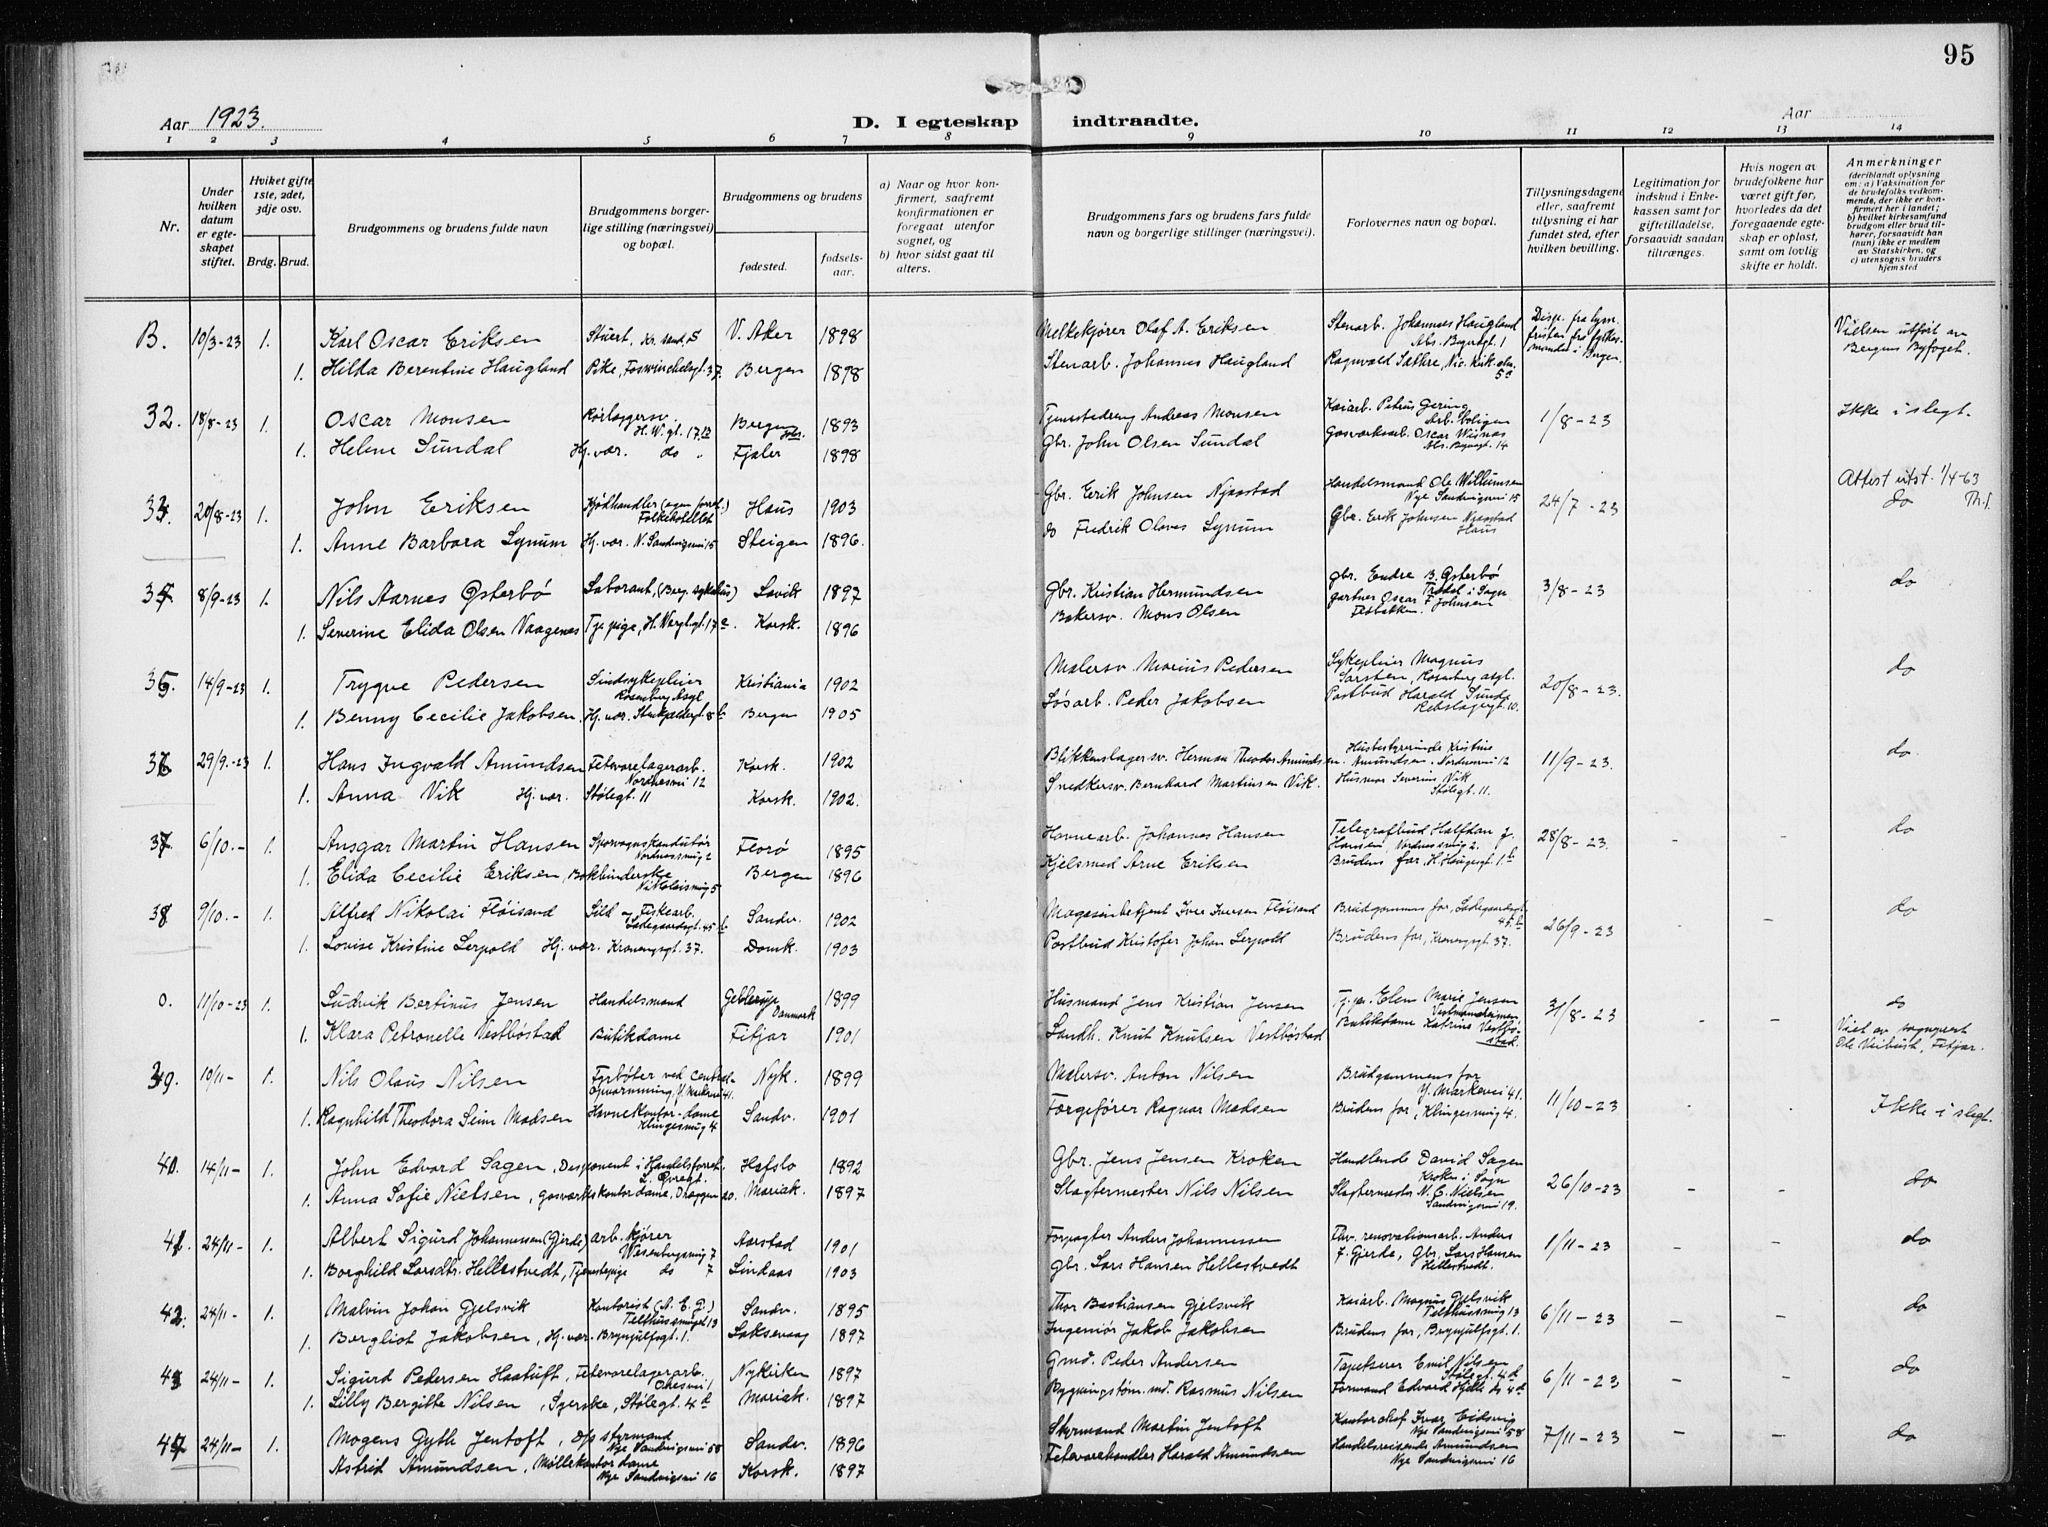 95
Aar 1923.
D. I egteskap indtraadte.
Aar
1 2 3 4 5 6 7 8 9 10 11 12 13 14
Nr.
Under hvilken datum er egteskapet stiftet.
Hviket gifte 1ste, 2det, 3dje osv.
Brdg. Brud.
Brudgommens og brudens fulde navn
Brudgommens borgerlige stilling (næringsvei) og bopæl.
Brudgommens og brudens
fødested.
fødselsaar.
a) Naar og hvor konfirmert, saafremt konfirmationen er foregaat utenfor sognet, og
b) hvor sidst gaat til alters.
Brudgommens fars og brudens fars fulde navn og borgerlige stillinger (næringsvei).
Forlovernes navn og bopæl.
Tillysningsdagene eller, saafremt tillysning ei har fundet sted, efter hvilken bevilling.
Legitimation for indskud i Enkekassen samt for giftetilladelse, forsaavidt saadan tiltrænges.
Hvis nogen av brudefolkene har været gift før, hvorledes da det foregaaende egteskap er opløst, samt om lovlig skifte er holdt.
Anmerkninger (deriblandt oplysning om: a) Vaksination for de brudefolks vedkommende, der ikke er konfirmert her i landet; b) hvilket kirkesamfund brudgom eller brud tilhører, forsaavidt han (hun) ikke er medlem av Statskirken, og c) utensogns bruders hjemsted
B. 10/3-23 1. Karl Oscar Eriksen Stuert, Kr. sand, 5 V. Aker 1898 Melkekjører Olaf A. Eriksen Stenarb. Johannes Haugland 1 Disp. fra lysn. fristen fra fylkesmanden i Bergen Vielsen utført av Bergens Byfoged.
1. Hilda Berentine Haugland Pike, 37. Bergen 1898 Stenarb. Johannes Haugland Ragnvald Sæthre, 5a
32. 18/8-23 1. Oscar Monsen Rørlæggersv. H. W. gt. 17 Bergen Johs. 1893 Tjenestedreng Andreas Monsen Kaiarb. Petrus Gering Arb. boligen 1/8-23 Ikke i slegt.
1. Helene Sundal Hj. vær. do Fjaler 1898 Gbr. John Olsen Sundal Gasværksarb. Oscar 14
33. 20/8-23 1. John Eriksen Kjødhandler (egen forret.) Folkehotellet Haus 1903 Gbr. Erik Johnsen Njaastad Handelsmand Ole Willumsen Nye Sandvigsvei 15 24/7-23 Attest utst. 1/4-63 do Th.S.
1. Anne Barbara Lynum Hj. vær. N. Sandvigsvei 15 Steigen 1896. do Fredrik Olavus Lynum Gbr. Erik Johnsen Njaastad Haus
34. 8/9-23 1. Nils Aarnes Østerbø Laborant, (Berg. sykehus) Lavik 1897 Gbr. Kristian Hermundsen gbr. Endre B. Østerbø i Sogn 3/8-23 do
1. Severine Elida Olsen Vaagenes Tj. pige, 17 Korsk. 1896 Bakersv. Mons Olsen gartner Oscar F. Johnsen
35. 14/9-23 1. Trygve Pedersen Sindsykepleier Rosenberg Asyl Kristiania 1902 Malersv. Marius Pedersen Sykepleier Magnus Rosenberg asyl. 20/8-23. do
1. Benny Cecilie Jakobsen. Hj. vær. 8b Bergen 1905 Løsarb. Peder Jakobsen Postbud Harald Sunde Rebslagergt. 10.
36. 29/9-23 1. Hans Ingvald Amundsen Fetevarelagerarb. Nordnesvei 12 Korsk. 1902 Blikkenslagersv. Herman Theodor Amundsen. Husbestyrerinde Kristine Amundsen. Nordnesvei 12 11/9-23. do.
1. Anna Vik Hj. vær. Stølegt. 11 Korsk. 1902. Snedkersv. Bernhard Martinsen Vik. Husmor Severine Vik Stølegt. 11.
37. 6/10.- 1. Ansgar Martin Hansen Sporvogns konduktør Nordnessmug 2 Florø 1895 Havnearb. Johannes Hansen Telegrafbud Halfdan J. Hansen, Nordnessmug 2. 28/8-23. - do
1. Elida Cecilie Eriksen, Bokbinderske Nikolaismug 5 Bergen 1896 Kjelsmed Arne Eriksen Brudens far, H. Haugesgt. 1b
38 9/10.- 1. Alfred Nikolai Fløisand Sild og Fiskearb. Ladegaardsgt. 45b Sandv. 1902 Magasinbetjent Iver Iversen Fløisand Brudgommens far, Ladegaardsgt. 45b 26/9-23 - - do
1. Lovise Kristine Lerpold Hj. vær. Kronengsgt. 37. Domk. 1903 Postbud Kristofer Johan Lerpold Brudens far, Kronengsgt. 37.
0. 11/10-23 1. Ludvik Bertinus Jensen Handelsmand Danmark 1899 Husmand Jens Kristian Jensen Tj. pi. Elen Marie Jensen 31/8-23 - - do
1. Klara Petronelle Vestbøstad Butikdame Fitjar 1901 Landh. Knut Knutsen Vestbøstad Butikdame Katrine Vestbøstad. Viet av sogneprest Ole Veibust, Fitjar.
39. 10/11- 1. Nils Olaus Nilsen Fyrbøter ved centralopvarmning, Y. Markevei 41. Nyk. 1899 Malersv. Anton Nilsen Brudgommens far Y. Markevei 41. 11/10-23 Ikke i slegt.
1. Ragnhild Theodora Seim Madsen Havnekontor-dame Klingesmug 4 Sandv. 1901 Færgefører Ragnar Madsen Brudens far, Klingesmug 4.
40. 14/11- 1. John Edvard Sagen, Disponent i Handelsforret. Ø. Øvregt. Hafslo 1892 Gbr. Jens Jensen Kroken Handlende David Sagen Kroken i Sogn 26/10-23 - - do
1. Anna Sofie Nielsen, gasværkskontordame, Dræggen 20. Mariak. 1897 Slagtermester Nils Nilsen Slagtermester N. C. Nielsen Sandvigsvei 19.
41. 24/11- 1. Albert Sigurd Johannessen (Gjerde) arb. kjører Wesenbergsmug 7 Aarstad 1901 Forpagter Anders Johannessen Fhv. renovationsarb. Anders J. Gjerde, Gbr. Lars Hansen Hellestvedt. 1/11-23 - - do
1. Borghild Larsdtr. Hellestvedt, Tjenestepige do 7 Lindaas 1903 gbr. Lars Hansen Hellestvedt
42. 24/11- 1. Malvin Johan Gjelsvik Kontorist (A. E. G.) Telthussmuget 13 Sandv. 1895 Thor Bastiansen Gjelsvik Kaiarb. Magnus Gjelsvik Telthussmug 13 6/11-23 - - do
1. Bergliot Jakobsen, Hj. vær. Brynjulfsgt. 1. Laksevaag 1897 Ingeniør Jakob Jakobsen Brudens far, Brynjulfsgt. 1.
43 24/11- 1. Sigurd Pedersen Haatuft, Fetevarelagerarb. Nykirken 1897 Gmd. Peder Andersen Tapetserer Emil Nilsen Stølegt. 4d 6/11-23 - - do
1. Lilly Bergitte Nilsen, Syerske, Stølegt. 4d Mariak. 1897 Bygningstøm. md. Rasmus Nilsen Formand Edvard Hjelle do 4d
44 24/11- 1. Mogens Gyth Jentoft, D/s styrmand Nye Sandvigsvei 58 Sandv. 1896 Styrmand Martin Jentoft Kontorchef Ivar Eidsvig Nye Sandvigsvei 58 7/11-23 - - do
Astrid Amundsen, Møllekontor dame Nye Sandvigsvei 16 Korsk. 1897 Fetevarehandler Harald Amundsen Handelsreisende Amundsen Nye Sandvigsvei 16